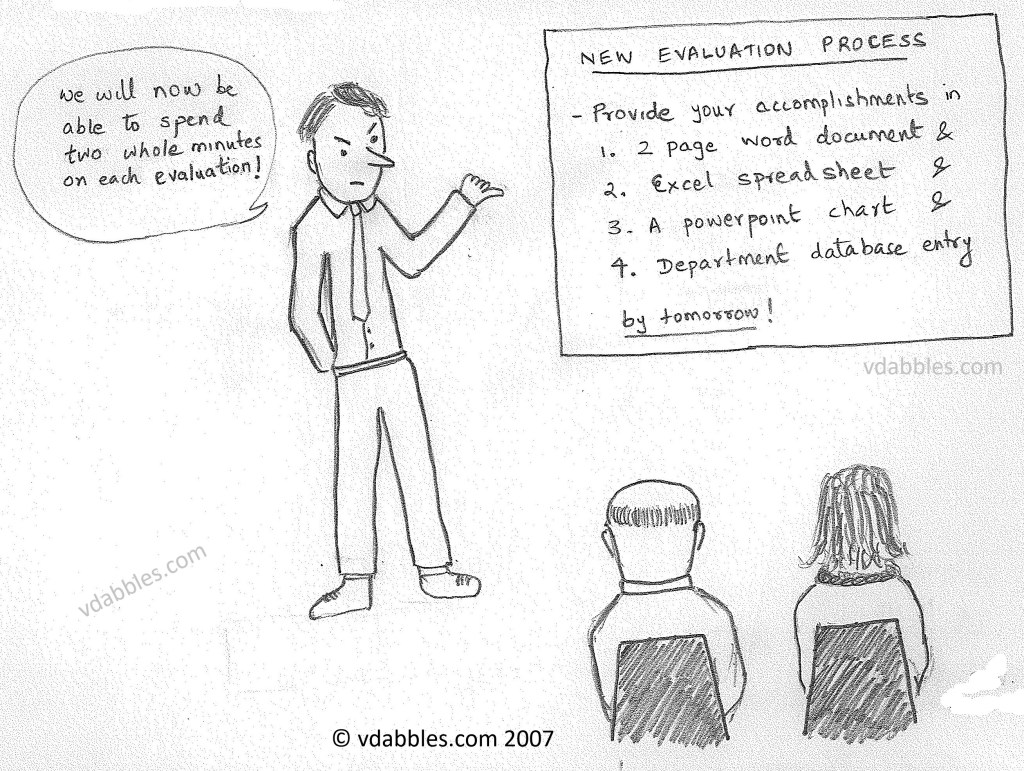 we will now be
able to spend
two whole minutes
on each evaluation!
NEW EVALUATION PROCESS
- Provide your accomplishments in
1. 2 page word document &
2. Excel spreadsheet &
3. A powerpoint chart &
4. Department database entry
by tomorrow!
vdabbles.com
vdabbles.com
© vdabbles.com 2007